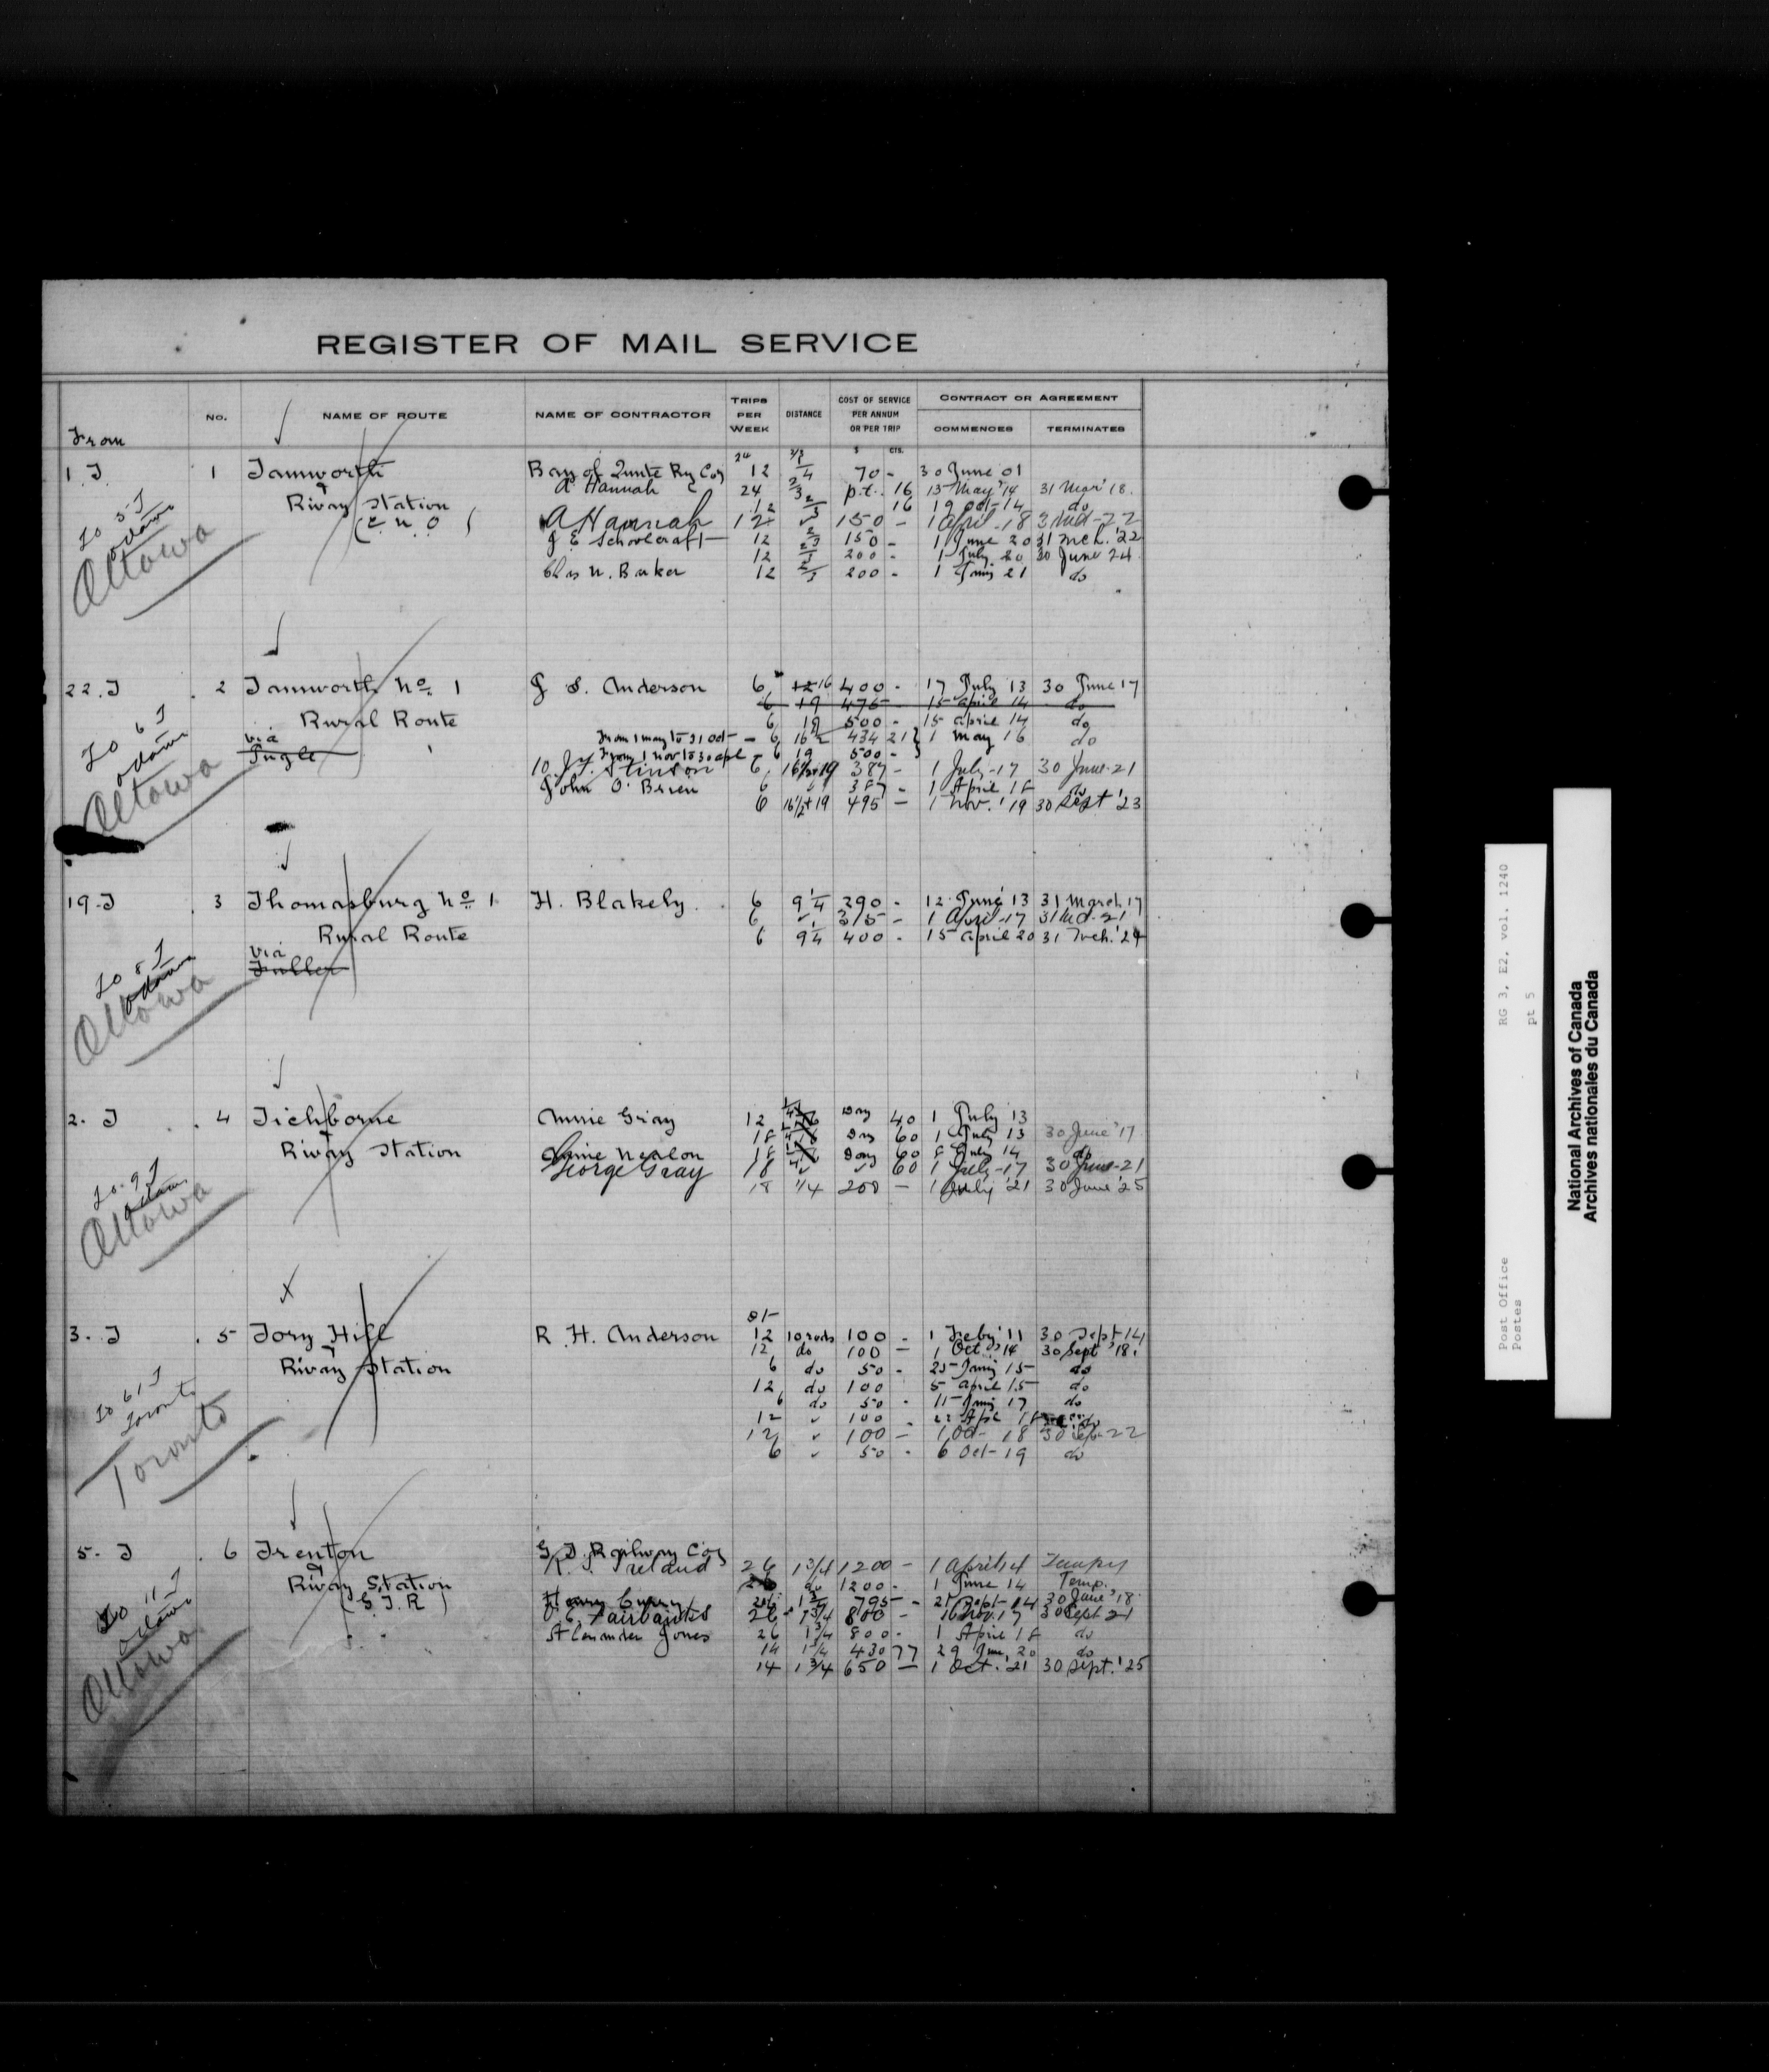 REGISTER OF MAIL SERVICE
From
NO.
NAME OF ROUTE
NAME OF CONTRACTOR
TRIPS PER WEEK
DISTANCE
COST OF SERVICE PER ANNUM OR PER TRIP
$ CTS.
CONTRACT OR AGREEMENT
COMMENCES
TERMINATES
1 T 1 Tamworth Bay of Quinte Ry Coy 12 70 - 30 June 01
A Hannah 24 2/3 p.t. 16 13 May '14 31 Mar '18
& Rlway Station 12 2/3 16 19 Oct - 14 do
(C. N. O A Hannah 12 ✓ 150 - 1 April - 18 31 Mch - 22
J E Schoolcraft 12 2/3 150 - 1 June 20 31 Mch. '22
12 2/3 200 - 1 July 20 30 June 24
Chas N. Barker 12 2/3 200 - 1 Jany 21 do
To 5 T
Ottawa
Ottawa
22. T 2 Tamworth No. 1 J S. Anderson 6 12 16 400 - 17 July 13 30 June 17
6 19 475 15 april 14 do
Rural Route 6 19 500 - 15 april 14 do
via From 1 may to 31 Oct - 6 16 1/2 434 21 1 may 16 do
Ingle From 1 Nov to 30 apl - 6 19 500 -
Stinson 6 16 1/2+19 387 - 1 July - 17 30 June - 21
John O' Brien 6 387 - 1 April 18 do
6 16 1/2+19 495 - 1 Nov. '19 30 Sept '23
To 6 T
Ottawa
Ottawa
19. T 3 Thomasburg No 1 H. Blakely 6 9 1/4 290 - 12 June 13 31 March 17
6 ✓ 315 - 1 April - 17 31 Md - 21
Rural Route 6 9 1/4 400 - 15 april 20 31 Mch. '24
via
Fuller
To 8 T
Ottawa
Ottawa
2. T 4 Tichborne Annie Gray 12 Day 40 1 July 13
18 Day 60 1 July 13 30 June '17
& Rlway Station Annie Nealon 18 Day 60 8 July 14 do
George Gray 18 ✓ ✓ 60 1 July - 17 30 June - 21
18 1/4 200 - 1 July '21 30 June '25
To 9 T
Ottawa
Ottawa
3. T 5 Tory Hill R. H. Anderson 12 10 rods 100 - 1 Feby '11 30 Sept 14
12 do 100 - 1 Oct. '14 30 Sept '18
& Rlway Station 6 do 50 - 25 Jany 15 do
12 do 100 5 april 15 do
6 do 50 - 11 Jany 17 do
12 ✓ 100 - 22 Apl 18 do
12 ✓ 100 - 1 Oct - 18 30 Sep - 22
6 ✓ 50 - 6 Oct - 19 do
To 61 T
Toronto
Toronto
5. T 6 Trenton G. T. Railway Coy
R. J. Ireland 26 1 3/4 1200 - 1 April 14 Tempy
& Rlway Station 26 do 1200 - 1 June 14 Temp.
(G. T. R) Henry Curry 26 1 3/4 795 - 21 Sept - 14 30 June '18
C. Fairbanks 26 1 3/4 800 - 16 Nov. 17 30 Sept 21
Alexander Jones 26 1 3/4 800 - 1 April 18 do
14 1 3/4 430 77 29 June, 20 do
14 1 3/4 650 - 1 Oct. '21 30 Sept. '25
To 11 T
Ottawa
Ottawa
RG 3, E2, vol. 1240
pt 5
Post Office
Postes
National Archives of Canada
Archives nationales du Canada